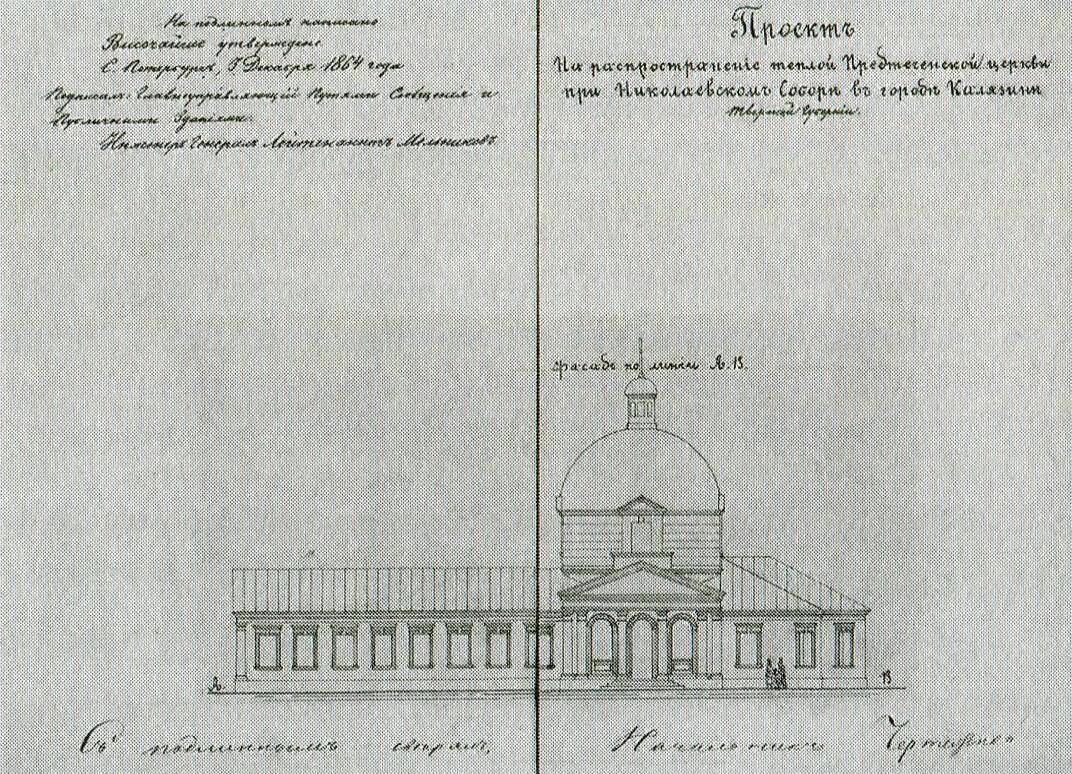 На подлинномъ написано
Высочайше утверждено.
С. Петербургъ, Декабря 1864 года
Подписалъ: Главноуправляющій Путями Сообщенія и
Публичными Зданіями
Инженеръ Генералъ Лейтенантъ Мельниковъ
Проектъ
На распространеніе теплой Предтеченской церкви
при Николаевскомъ Соборѣ въ городѣ Калязинѣ
Тверской Губерніи.
Фасадъ по линіи А. В.
А.
В
Съ подлиннымъ вѣрно,
Начальникъ Чертежной